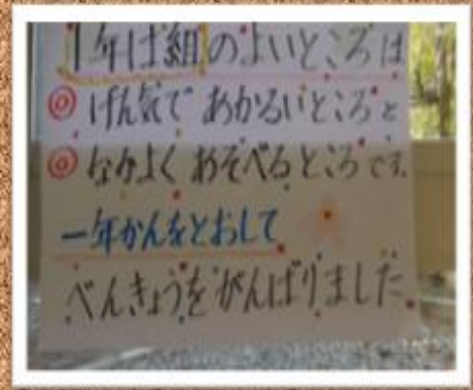 1年は組のよいところは
◎げん気で あかるいところと
◎なかよく あそべるところです。
一年かんをとおして
べんきょうをがんばりました。